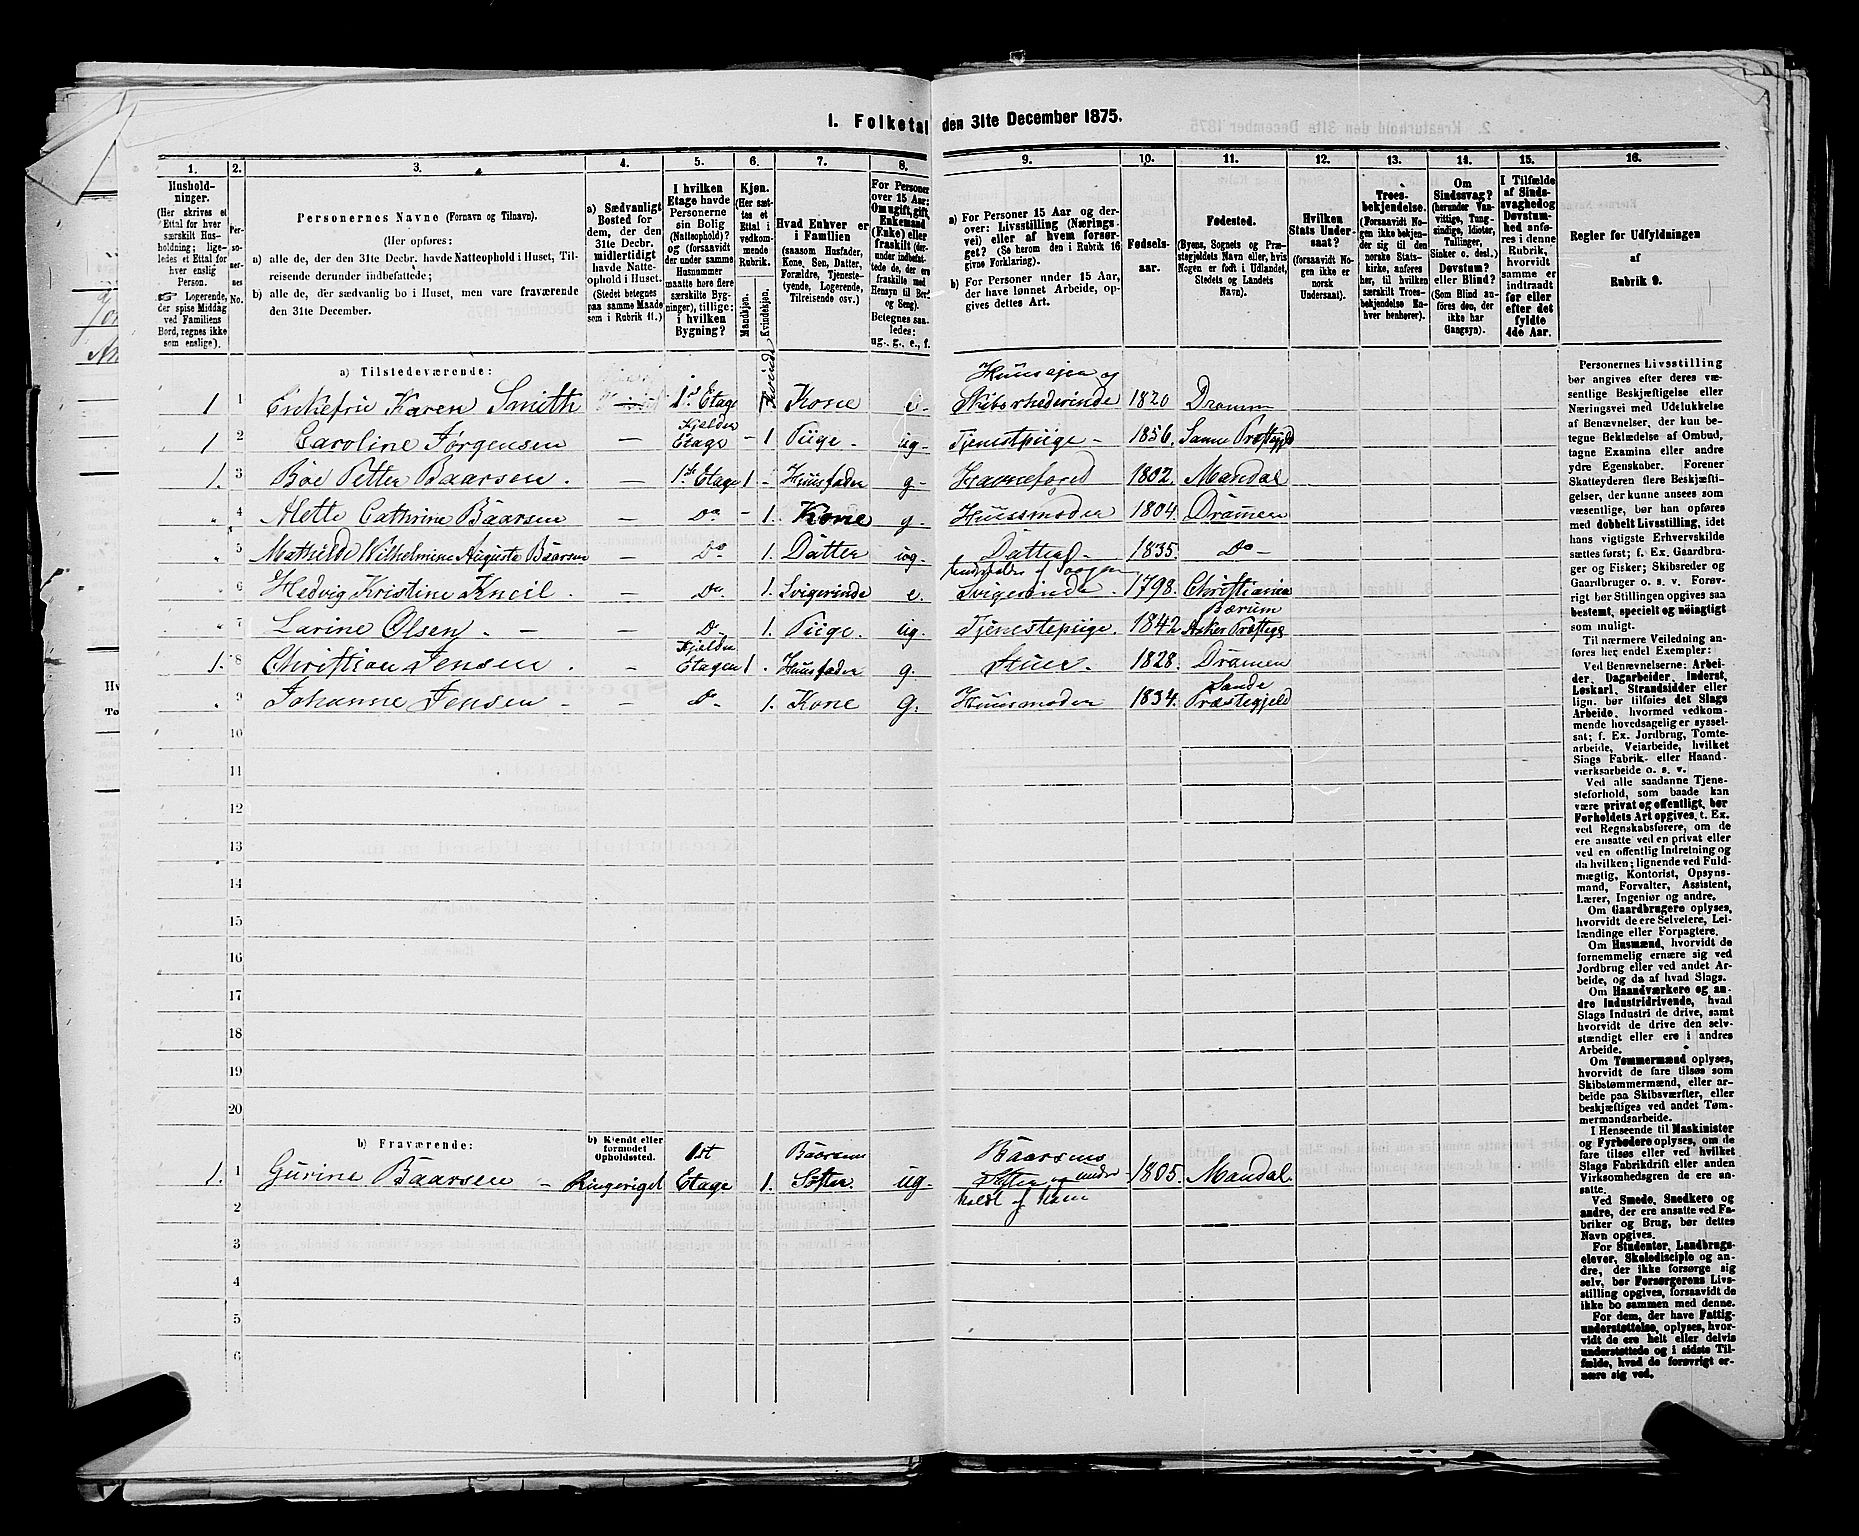 1. Folketal den 31te December 1875.
1. 2. 3. 4. 5. 6. 7. 8. 9. 10. 11. 12. 13. 14. 15. 16.
Hushold-
ninger.
(Her skrives et
Ettal for hver
særskilt Hus-
holdning; lige-
ledes et Ettal for
hver enslig
Person.
Logerende,
der spise Middag
ved Familiens
Bord, regnes ikke
som enslige).
Per-
so-
ner-
nes
No.
Personernes Navne (Fornavn og Tilnavn).
(Her opføres:
a) alle de, der den 31te Decbr. havde Natteophold i Huset, Til-
reisende derunder indbefattede;
b) alle de, der sædvanlig bo i Huset, men vare fraværende
den 31te December.
a) Sædvanligt
Bosted for
dem, der den
31te Decbr.
midlertidigt
havde Natte-
ophold i Huset.
(Stedet betegnes
paa samme Maade
som i Rubrik 11.)
I hvilken
Etage havde
Personerne
sin Bolig
(Natteophold)?
og (forsaavidt
der under samme
Husnummer
maatte høre flere
særskilte Byg-
ninger), tillige:
i hvilken
Bygning?
Kjøn.
(Her sæt-
tes et
Ettal i
vedkom-
mende
Rubrik.
Mandskjøn.
Kvindekjøn.
Hvad Enhver er
i Familien
(saasom Husfader,
Kone, Søn, Datter,
Forældre, Tjeneste-
tyende, Logerende,
Tilreisende osv.)
For Personer
over 15 Aar:
Om ugift, gift,
Enkemand
(Enke) eller
fraskilt
Betegnes saa-
ledes:
ug., g., e., f.
a) For Personer 15 Aar og der-
over: Livsstilling (Nærings-
vei) eller af hvem forsør-
get? (Se herom den i Rubrik 16
givne Forklaring).
b) For Personer under 15 Aar,
der have lønnet Arbeide, op-
gives dettes Art.
Fødsels-
aar.
Fødested.
(Byens, Sognets og Præ-
stegjeldets Navn eller, hvis
Nogen er født i Udlandet,
Stedets og Landets
Navn).
Hvilken
Stats Under-
saat?
(forsaavidt No-
gen ikke er
norsk
Undersaat).
Troes-
bekjendelse.
(Forsaavidt No-
gen ikke bekjen-
der sig til den
norske Stats-
kirke, anføres
her, til hvilken
særskilt Troes-
bekjendelse En-
hver henhører).
Om
Sindssvag?
(herunder Van-
vittige, Tung-
sindige, Idioter,
Tullinger,
Sinker o. desl.)
Døvstum?
eller Blind?
(Som Blind an-
føres den, der
ikke har
Gangsyn).
I Tilfælde
af Sinds-
svaghed og
Døvstum-
hed anfø-
res i denne
Rubrik,
hvorvidt
samme er
indtraadt
før eller
efter det
fyldte
4de Aar.
Regler for Udfyldningen
af
Rubrik 9.
a) Tilstedeværende:
1 1 Enkefru Karen Smith 1st Etage Kone e. Huuseier og Skibsrhederinde 1820 Drammen
1 2 Caroline Jørgensen — Kjelder Etage - 1 Piige. ug. Tjenestpiige - 1856. Sanne Præstegjeld
1. 3 Böe Petter Baarsen. — 1ste Etage 1 - Huusfader g. Havnefoged 1802. Mandal
4 Mette Cathrine Baarsen — Do - 1. Kone g. Huusmoder 1804. Drammen
5 Mathilde Wilhelmine Augusta Baarsen — Do 1. Datter ug. Datter 1835. Do
6 Hedvig Kristine Kneil. — Do. 1. Svigerinde e. Svigerinde. 1798. Christiania
7 Larine Olsen. — — Do 1. Piige. ug. Tjenestepiige. 1842 Bærum Asker Præstegj
1. 8 Christian Jensen. — Kjelder Etagen 1. Huusfader g. Stuer. 1828. Dramen
9 Johanne Jensen - — Do 1. Kone g. Huusmoder 1834. Sande Præstegjeld
10
11
12
13
14
15
16
17
18
19
20
b) Fraværende:
b) Kjendt eller
formodet
Opholdssted.
1. 1 Gurine Baarsen - Ringeriget 1st Etage 1. Baarsens Søster. ug. Baarsens Søster og underholdt af ham 1805. Mandal
2
3
4
5
6
Personernes Livsstilling
bør angives efter deres væ-
sentlige Beskjæftigelse eller
Næringsvei med Udelukkelse
af Benævnelser, der kun be-
tegne Beklædelse af Ombud,
tagne Examina eller andre
ydre Egenskaber. Forener
Skatteyderen flere Beskjæfti-
gelser, der kunne ansees som
væsentlige, bør han opføres
med dobbelt Livsstilling, idet
hans vigtigste Erhvervskilde
sættes først; f. Ex. Gaardbru-
ger og Fisker; Skibsreder og
Gaardbruger o. s. v. Forøv-
rigt bør Stillingen opgives saa
bestemt, specielt og nøiagtigt
som muligt.
Til nærmere Veiledning an-
føres her endel Exempler:
Ved Benævnelserne: Arbei-
der, Dagarbeider, Inderst,
Løskarl, Strandsidder eller
lign. bør tilføies det Slags
Arbeide, hvormed vedkom-
mende hovedsagelig er syssel-
sat; f. Ex. Jordbrug, Tomte-
arbeide, Veiarbeide, hvilket
Slags Fabrik- eller Haand-
værksarbeide o. s. v.
Ved alle saadanne Tjene-
steforhold, som baade kan
være privat og offentligt, bør
Forholdets Art opgives, t. Ex.
ved Regnskabsførere, om de
ere ansatte ved en privat eller
ved en offentlig Indretning og
da hvilken; lignende ved Fuld-
mægtig, Kontorist, Opsyns-
mand, Forvalter, Assistent,
Lærer, Ingeniør og andre.
Om Gaardbrugere oplyses,
hvorvidt de ere Selveiere, Lei-
lændinge eller Forpagtere.
Om Husmænd, hvorvidt de
fornemmelig ernære sig ved
Jordbrug eller ved andet Ar-
beide, og da af hvad Slags.
Om Haandværkere og an-
dre Industridrivende, hvad
Slags Industri de drive, samt
hvorvidt de drive den selv-
stændigt eller ere i andres
Arbeide.
Om Tømmermænd oplyses,
hvorvidt de fare tilsøs som
Skibstømmermænd, eller ar-
beide paa Skibsværfter, eller
beskjæftiges ved andet Tøm-
mermandsarbeide.
I Henseende til Maskinister
og Fyrbødere oplyses, om de
fare tilsøs eller ved hvilket
Slags Fabrikdrift eller anden
Virksomhedsgren de ere an-
satte.
Ved Smede, Snedkere og
andre, der ere ansatte ved Fa-
briker og Brug, bør dettes
Navn opgives.
For Studenter, Landbrugs-
elever, Skoledisciple og an-
dre, der ikke forsørge sig
selv, bør Forsørgerens Livs-
stilling opgives, forsaavidt de
ikke bo sammen med denne.
For dem, der have Fattig-
understøttelse, oplyses, hvor-
vidt de ere helt eller delvis
understøttede og i sidste Til-
fælde, hvad de forøvrigt er-
nære sig ved.